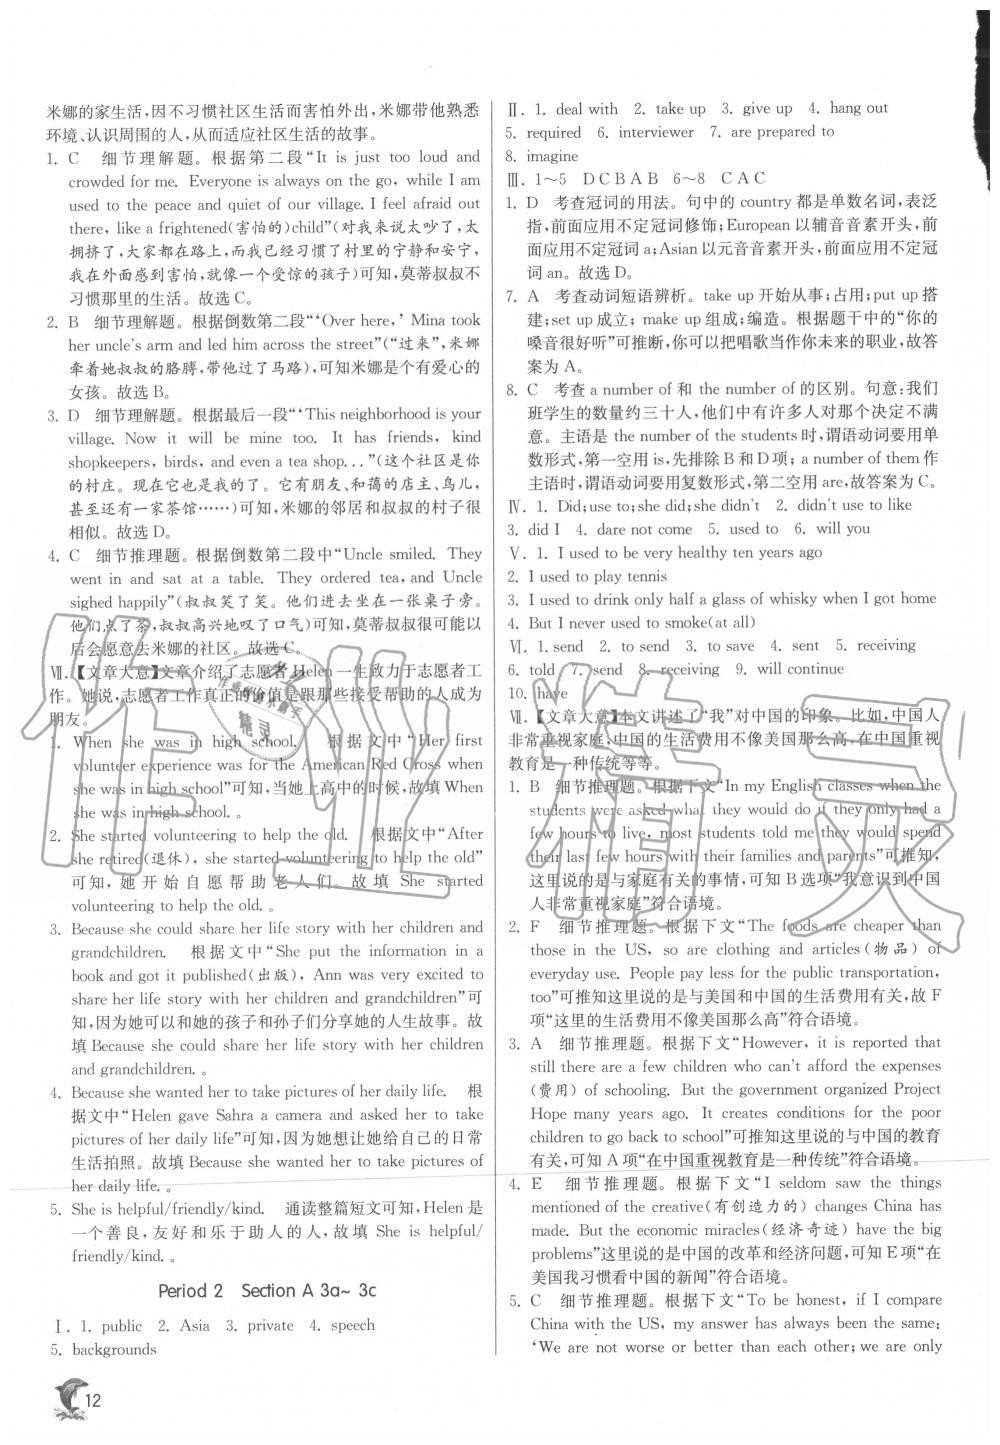 米娜的家生活,因不习惯社区生活而害怕外出,米娜带他熟悉
环境、认识周围的人,从而适应社区生活的故事。
1. C 细节理解题。根据第二段“It is just too loud and
crowded for me. Everyone is always on the go, while I am
used to the peace and quiet of our village. I feel afraid out
there, like a frightened(害怕的)child”(对我来说太吵了,太
拥挤了,大家都在路上,而我已经习惯了村里的宁静和安宁,
我在外面感到害怕,就像一个受惊的孩子)可知,莫蒂叔叔不
习惯那里的生活。故选C。
2. B 细节理解题。根据倒数第二段“‘Over here,’ Mina took
her uncle's arm and led him across the street”(“过来”,米娜
牵着她叔叔的胳膊,带他过了马路),可知米娜是个有爱心的
女孩。故选B。
3. D 细节理解题。根据最后一段“‘This neighborhood is your
village. Now it will be mine too. It has friends, kind
shopkeepers, birds, and even a tea shop...”(这个社区是你
的村庄。现在它也将是我的了。它有朋友、和蔼的店主、鸟儿,
甚至还有一家茶馆……)可知,米娜的邻居和叔叔的村子很
相似。故选D。
4. C 细节推理题。根据倒数第二段中“Uncle smiled. They
went in and sat at a table. They ordered tea, and Uncle
sighed happily”(叔叔笑了笑。他们进去坐在一张桌子旁。
他们点了茶,叔叔高兴地叹了口气)可知,莫蒂叔叔很可能以
后会愿意去米娜的社区。故选C。
Ⅶ.【文章大意】文章介绍了志愿者Helen一生致力于志愿者工
作。她说,志愿者工作真正的价值是跟那些接受帮助的人成为
朋友。
1. When she was in high school. 根据文中“Her first
volunteer experience was for the American Red Cross when
she was in high school”可知,当她上高中的时候,故填When
she was in high school. 。
2. She started volunteering to help the old. 根据文中“After
she retired(退休), she started volunteering to help the old”
可知,她开始自愿帮助老人们。故填 She started
volunteering to help the old. 。
3. Because she could share her life story with her children and
grandchildren. 根据文中“She put the information in a
book and got it published(出版), Ann was very excited to
share her life story with her children and grandchildren”可
知,因为她可以和她的孩子和孙子们分享她的人生故事。故
填 Because she could share her life story with her children
and grandchildren. 。
4. Because she wanted her to take pictures of her daily life. 根
据文中“Helen gave Sahra a camera and asked her to take
pictures of her daily life”可知,因为她想让她给自己的日常
生活拍照。故填 Because she wanted her to take pictures of
her daily life. 。
5. She is helpful/friendly/kind. 通读整篇短文可知,Helen是
一个善良,友好和乐于助人的人,故填 She is helpful/
friendly/kind. 。
Period 2 Section A 3a~3c
Ⅰ. 1. public 2. Asia 3. private 4. speech
5. backgrounds
12
Ⅱ. 1. deal with 2. take up 3. give up 4. hang out
5. required 6. interviewer 7. are prepared to
8. imagine
Ⅲ. 1～5 DCBAB 6～8 CAC
1. D 考查冠词的用法。句中的country都是单数名词,表泛
指,前面应用不定冠词修饰;European以辅音音素开头,前
面应用不定冠词a;Asian以元音音素开头,前面应用不定冠
词an。故选D。
7. A 考查动词短语辨析。take up开始从事;占用;put up搭
建;set up成立; make up组成;编造。根据题干中的“你的
嗓音很好听”可推断,你可以把唱歌当作你未来的职业,故答
案为A。
8. C 考查 a number of 和 the number of 的区别。句意:我们
班学生的数量约三十人,他们中有许多人对那个决定不满
意。主语是 the number of the students时,谓语动词要用单
数形式,第一空用is,先排除B和D项; a number of them作
主语时,谓语动词要用复数形式,第二空用are,故答案为C。
Ⅳ. 1. Did;use to;she did;she didn't 2. didn't use to like
3. did I 4. dare not come 5. used to 6. will you
Ⅴ. 1. I used to be very healthy ten years ago
2. I used to play tennis
3. I used to drink only half a glass of whisky when I got home
4. But I never used to smoke(at all)
Ⅵ. 1. send 2. to send 3. to save 4. sent 5. receiving
6. told 7. send 8. receiving 9. will continue
10. have
Ⅶ.【文章大意】本文讲述了“我”对中国的印象。比如,中国人
非常重视家庭,中国的生活费用不像美国那么高,在中国重视
教育是一种传统等等。
1. B 细节推理题。根据下文“In my English classes when the
students were asked what they would do if they only had a
few hours to live, most students told me they would spend
their last few hours with their families and parents”可推知,
这里说的是与家庭有关的事情,可知B选项“我意识到中国
人非常重视家庭”符合语境。
2. F 细节推理题。根据下文“The foods are cheaper than
those in the US, so are clothing and articles(物品) of
everyday use. People pay less for the public transportation,
too”可推知这里说的是与美国和中国的生活费用有关,故F
项“这里的生活费用不像美国那么高”符合语境。
3. A 细节推理题。根据下文“However, it is reported that
still there are a few children who can't afford the expenses
(费用) of schooling. But the government organized Project
Hope many years ago. It creates conditions for the poor
children to go back to school”可推知这里说的是与中国的教育
有关,可知A项“在中国重视教育是一种传统”符合语境。
4. E 细节推理题。根据下文“I seldom saw the things
mentioned of the creative(有创造力的) changes China has
made. But the economic miracles(经济奇迹) have the big
problems”这里说的是中国的改革和经济问题,可知E项“在
美国我习惯看中国的新闻”符合语境。
5. C 细节推理题。根据下文“To be honest, if I compare
China with the US, my answer has always been the same:
‘We are not worse or better than each other; we are only